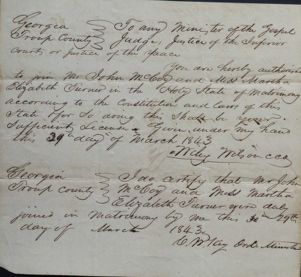 Georgia } To any Minister of the Gospel
Troup County } Judge, Justice of the Inferior
Court, or Justice of the peace
You are hereby authorised
to join Mr John McCoy and Miss Martha
Elizabeth Turner in the Holy State of Matrimony
according to the Constitution and laws of this
State & for So doing this Shall be your
Sufficient license Given under my hand
this 29th day of March 1843
Wiley Wilson CCO
Georgia } I do certify that Mr John
Troup county } McCoy and Miss Martha
Elizabeth Turner were duly
joined in Matrimony by me this 29th
day of March 1843